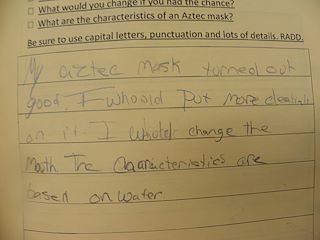 □ What would you change if you had the chance?
□ What are the characteristics of an Aztec mask?
Be sure to use capital letters, punctuation and lots of details. RADD.
My aztec mask turned out
good. I whoold put more
on it. I change the
Moth The Characteristics are
based on water